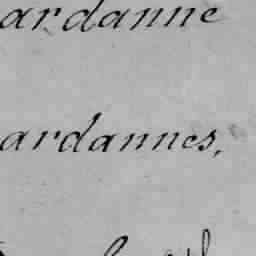 ardanne
ardannes,